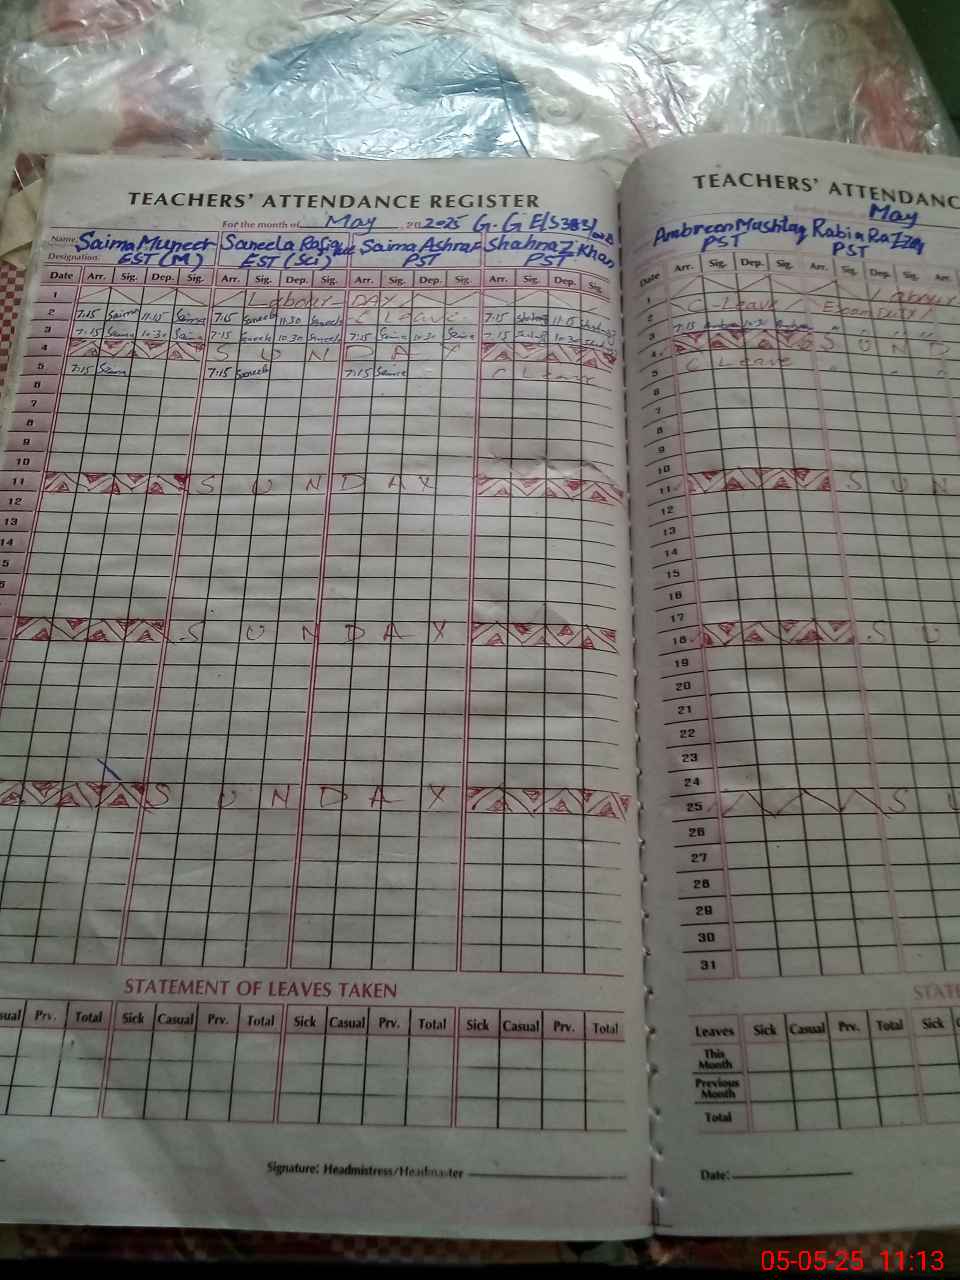 TEACHERS' ATTENDANCE REGISTER
For the month of May 2025 G.G E/S
Name: Saima Muneer Saneela Rafique Saima Ashraf Shahnaz Khan
Designation: EST (M) EST (Sci) PST PST
Date Arr. Sig. Dep. Sig. Arr. Sig. Dep. Sig. Arr. Sig. Dep. Sig. Arr. Sig. Dep. Sig.
1 Labour DAY
2 7:15 Saima 11:15 Saima 7:15 Saneela 11:30 Saneela C Leave 7:15 Shahnaz 11:15 Shahnaz
3 7:15 Saima 10:30 Saima 7:15 Saneela 10:30 Saneela 7:15 Saima 10:30 Saima 7:15 Shahnaz 10:30
4 S U N D A Y
5 7:15 Saima 7:15 Saneela 7:15 Saima C Leave
6
7
8
9
10
11 S U N D A Y
12
13
14
15
S U N D A Y
S U N D A Y
STATEMENT OF LEAVES TAKEN
Prv. Total Sick Casual Prv. Total Sick Casual Prv. Total Sick Casual Prv. Total
Signature: Headmistress/Headmaster
TEACHERS' ATTENDANC
May
Ambreen Mushtaq Rabia Razzaq
PST PST
Date Arr. Sig. Dep. Sig. Arr. Sig. Dep. Sig. Arr.
1 Labour
2 C Leave Exam duty
3 7:15 10:30
4 S U N D
5 C Leave
6
7
8
9
10
11 S U N
12
13
14
15
16
17
18 S U
19
20
21
22
23
24
25 S U
26
27
28
29
30
31
STATE
Leaves Sick Casual Prv. Total Sick
This Month
Previous Month
Total
Date:
05-05-25 11:13